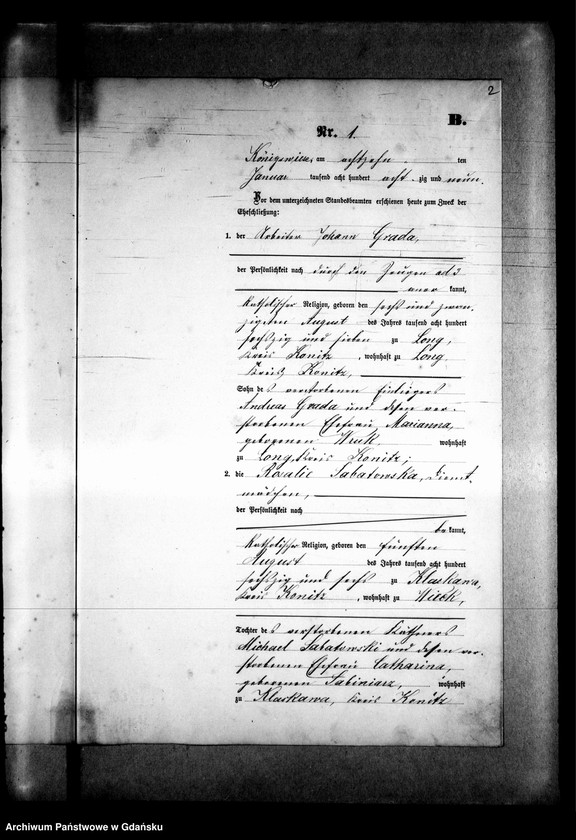 2
B.
Nr. 1.
am achtzehn ten
Januar tausend acht hundert acht zig und neun.
Vor dem unterzeichneten Standesbeamten erschienen heute zum Zweck der
Eheschließung:
1. der Arbeiter Johann Grada,
der Persönlichkeit nach durch den Zeugen ad 3
aner kannt,
katholischer Religion, geboren den sechs und zwan-
zigsten August des Jahres tausend acht hundert
sechszig und sieben zu Long,
Kreis Konitz, wohnhaft zu Long,
Kreis Konitz,
Sohn des verstorbenen Einliegers
Andreas Grada und dessen ver-
storbenen Ehefrau Marianna,
geborenen Wruk wohnhaft
zu Long, Kreis Konitz;
2. die Rosalie Sabatowska, Dienst-
mädchen,
der Persönlichkeit nach
be kannt,
katholischer Religion, geboren den fünften
August des Jahres tausend acht hundert
sechszig und sechs zu Klaskawa,
Kreis Konitz, wohnhaft zu Wieck,
Tochter des verstorbenen Käthners
Michael Sabatowski und dessen ver-
storbenen Ehefrau Catharina,
geborenen wohnhaft
zu Klaskawa, Kreis Konitz
Archiwum Państwowe w Gdańsku